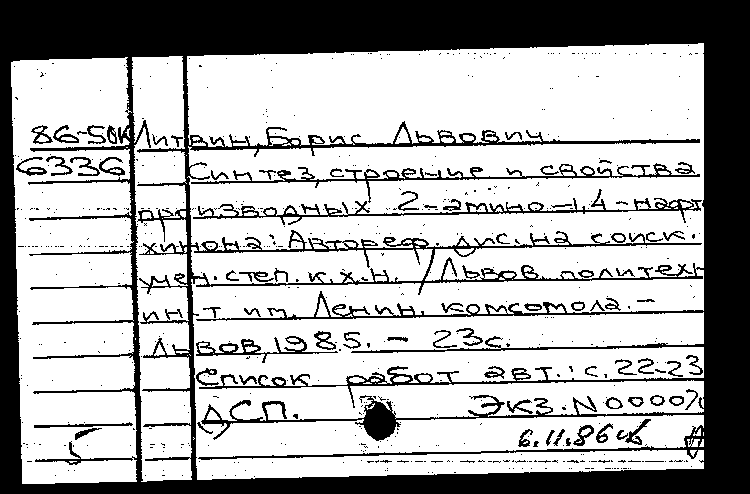 86-50к Литвин, Борис Львович.
6336 Синтез, строение и свойства
производных 2-амино-1,4-нафто
хинона: Автореф. дис. на соиск.
учен. степ. к.х.н. / Львов. политехн
ин-т им. Ленин. комсомола. –
Львов, 1985. – 23с.
Список работ авт.: с. 22-23
ДСП. Экз. N 00007
5 6.11.86